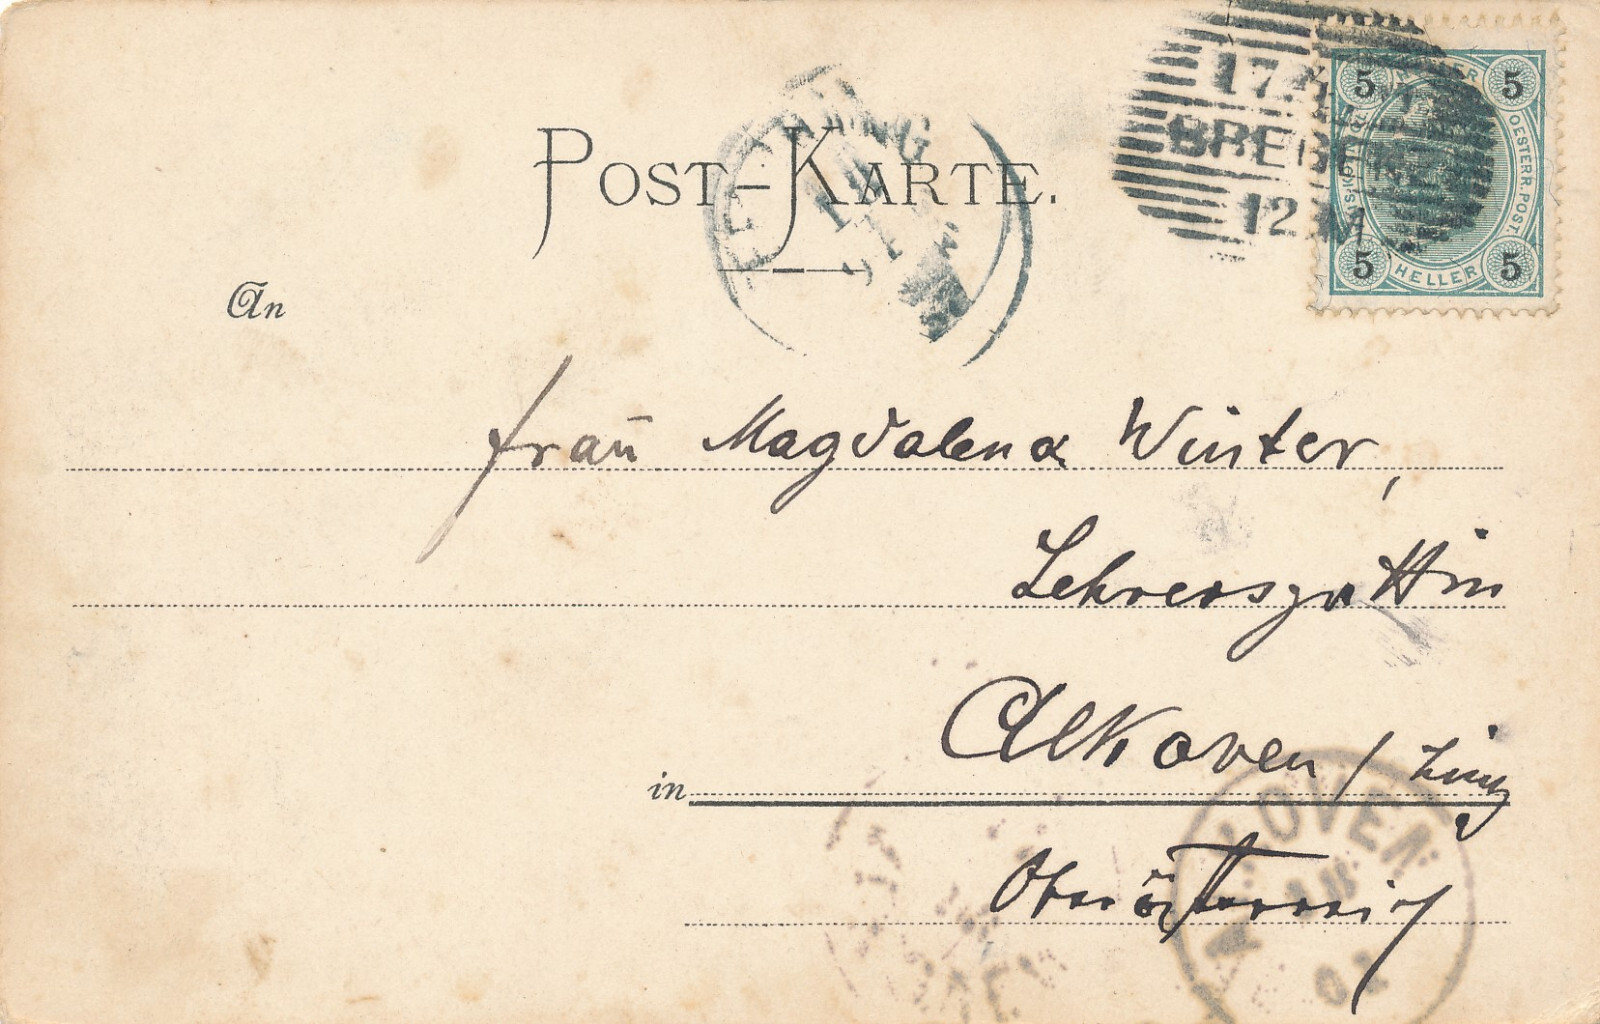 POST-KARTE.
An
Frau Magdalena Winter,
Lehrersgattin
Alkoven / Linz
in
Oberösterreich
5 5
OESTERR. POST.
5 HELLER 5
17.
BREGENZ
12